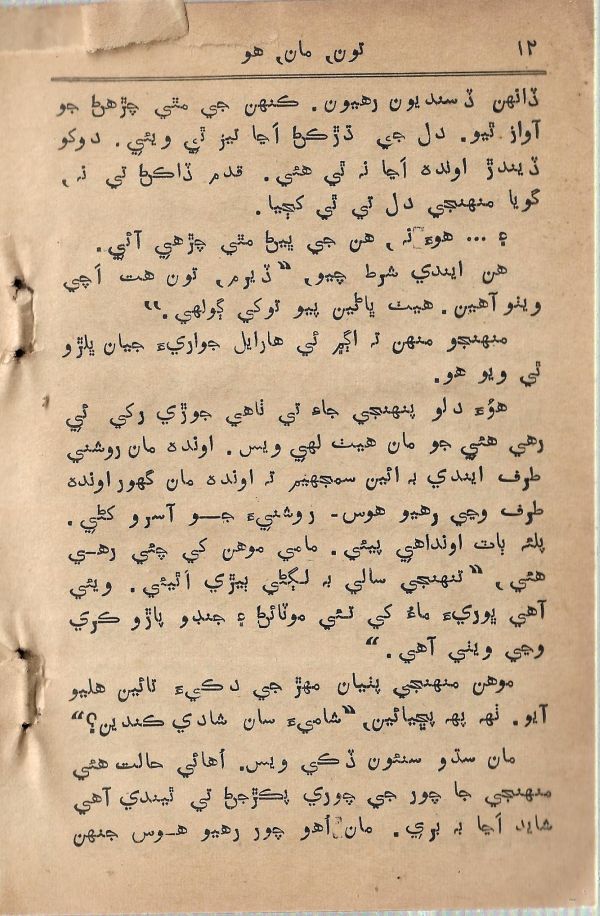 ۱۲
تون، مان، هو
ڏانهن ڏسنديون رهيون. ڪنهن جي مٿي چڙهڻ جو
آواز ٿيو. دل جي ڌڙڪڻ اڃا تيز ٿي ويئي. دوکو
ڏيندڙ اونده اڃا نه ٿي هئي. قدم ڏاڪڻ تي نه،
گويا منهنجي دل تي ٿي کڄيا.
۽ ... هوءَ نہ، هن جي ڀيڻ مٿي چڙهي آئي.
هن ايندي شرط چيو، “ڏيرم، تون هت اچي
ويٺو آهين. هيٺ ڀاڻين پيو توکي ڳولهي.”
منهنجو منهن تہ اڳ ۾ ئي هارايل جواريءَ جيان پلڙو
ٿي ويو هو.
هوءَ دلو پنهنجي جاءِ تي ٺاهي جوڙي رکي ئي
رهي هئي جو مان هيٺ لهي ويس. اونده مان روشني
طرف ايندي بہ ائين سمجهيم تہ اونده مان گهور اونده
طرف وڃي رهيو هوس- روشنيءَ جو آسرو کڻي.
پلئہ باٺ اونداهي پيئي. مامي موهن کي چئي رهي
هئي، “تنهنجي سالي بہ لڳڻي ٻيڙي آئيئي. ويئي
آهي ڀوريءَ ماءُ کي ٿئي موٽائڻ ۽ جندو پاڙو ڪري
وڃي ويٺي آهي.“
موهن منهنجي پٺيان مهڙ جي دڪيءَ تائين هليو
آيو. ٺهہ پهہ پڇيائين، “شاميءَ سان شادي ڪندين؟“
مان سڌو سنئون ڏڪي ويس. اهائي حالت هئي
منهنجي جا چور جي چوري پڪڙجڻ تي ٿيندي آهي
شايد اڃا بہ بري. مان اُهو چور رهيو هوس جنهن